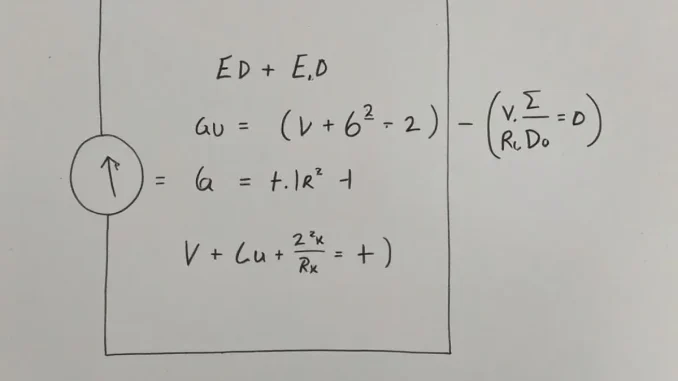 ED + E.D
Gu = (V + 6² ÷ 2) - (V. Σ / R. D₀ = D)
= G = t.1R² -1
V + Cu + 2²ᴷ / Rx = +)